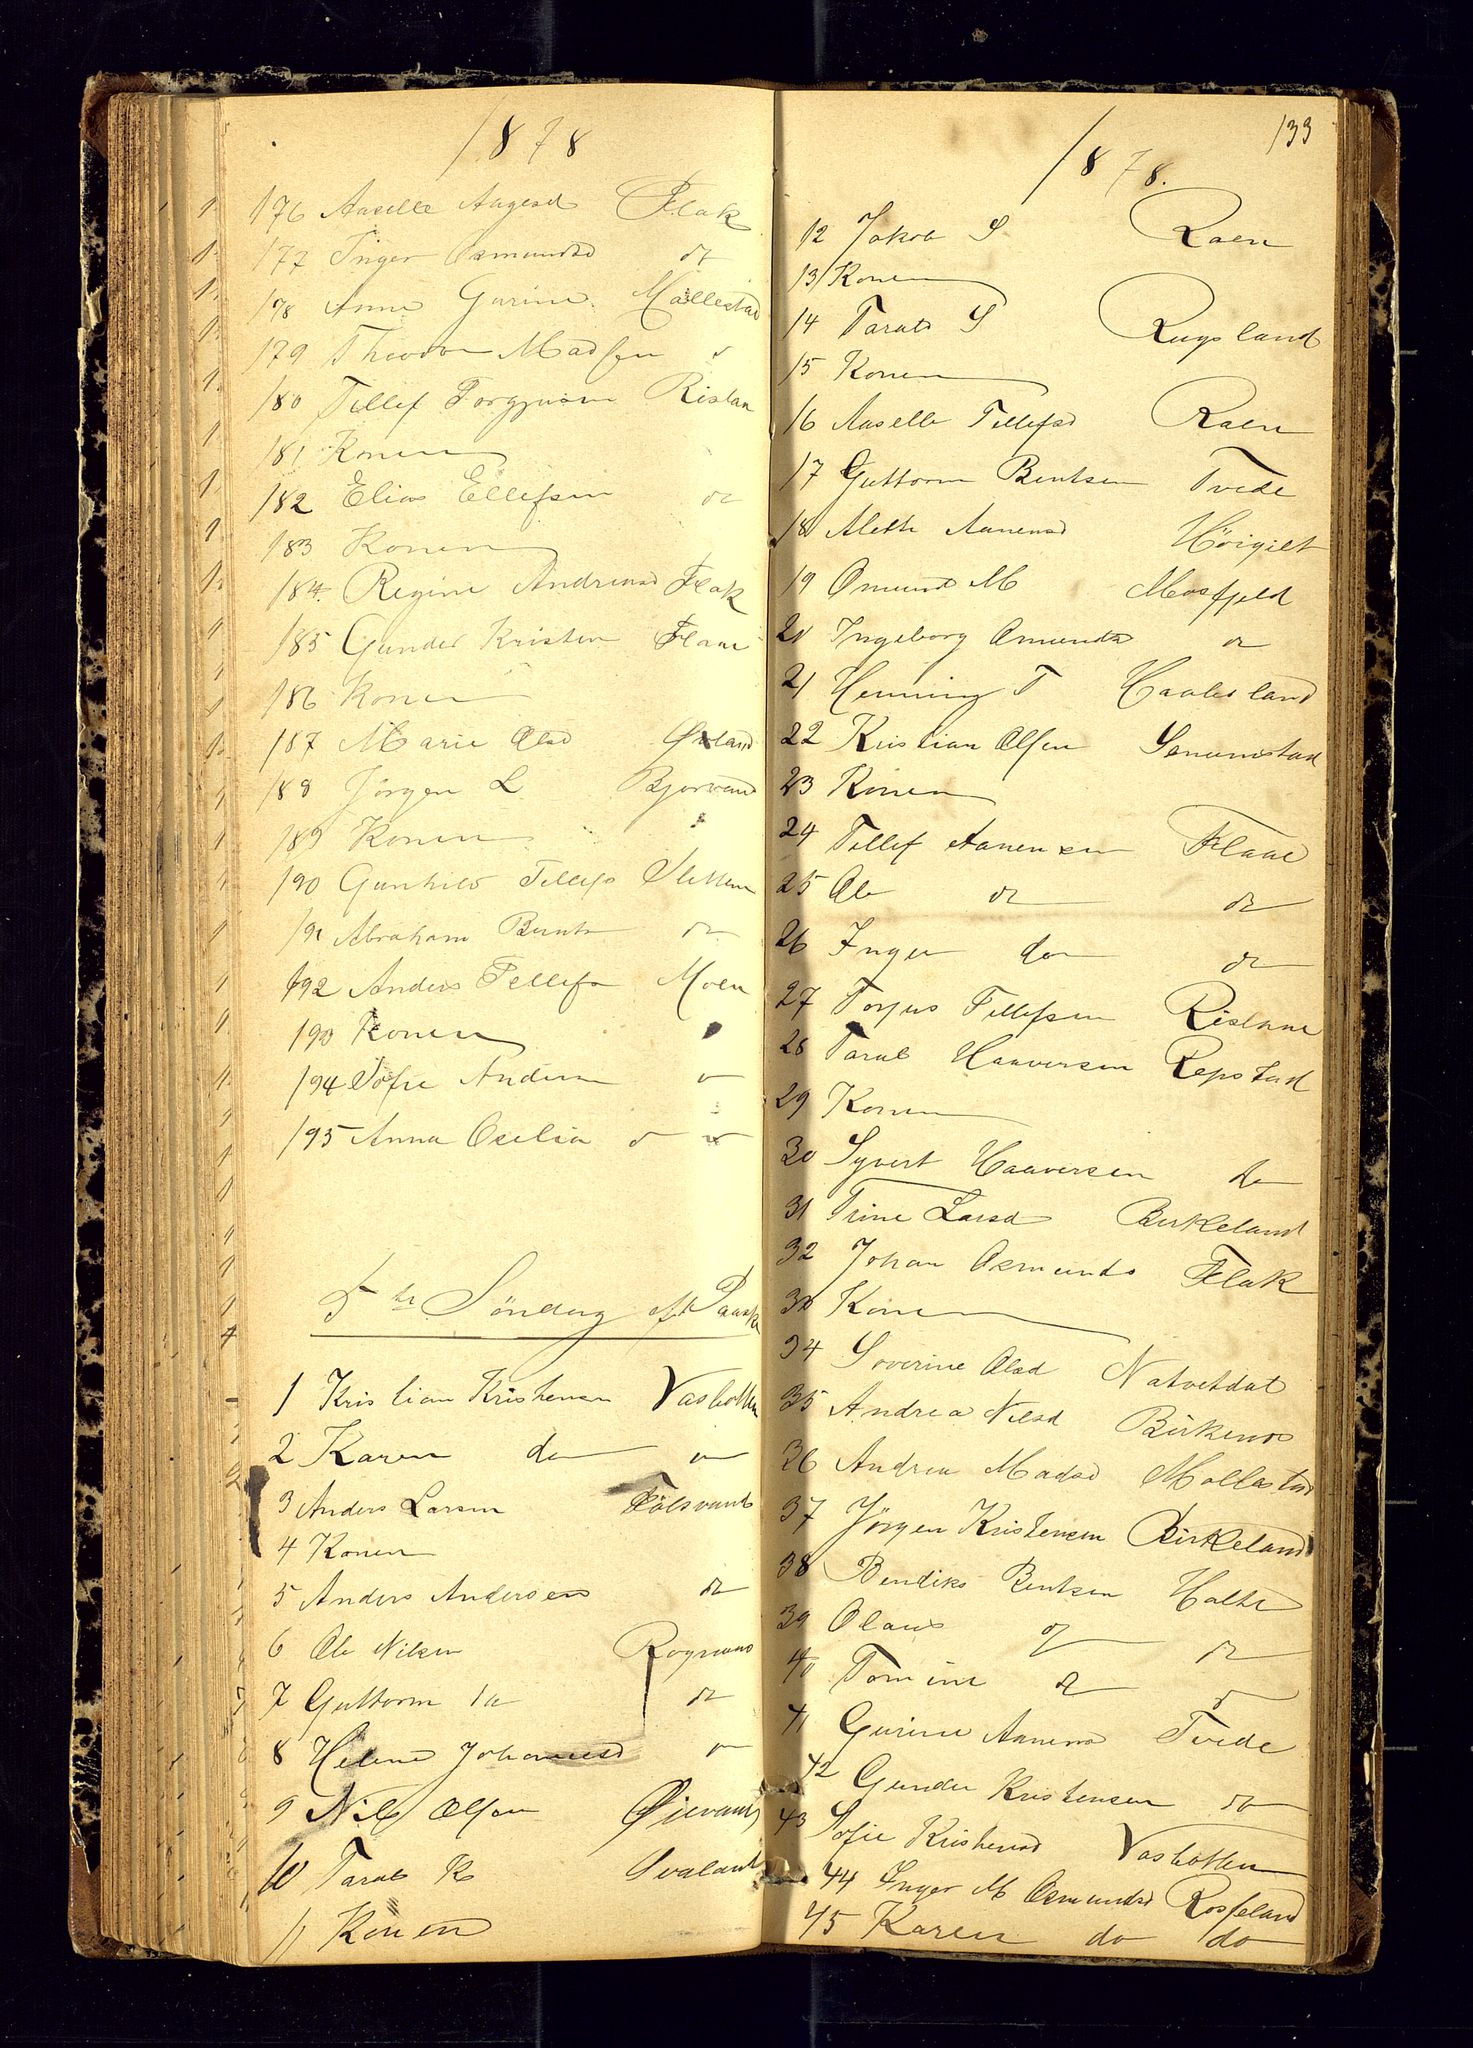 1878
176 Aaselle Aagesd Flak
177 Inger Osmundsd do
178 Anne Gurine Mollestad
179 Theodor Madsen do
180 Tellef Torgjusen Rislan
181 Konen
182 Elias Ellefsen do
183 Konen
184. Regine Andreasd Flak
185 Gunder Kristen Flaae
186 Konen
187 Marie Olsd
188 Jørgen L Bjorvand
189 Konen
190 Gunhild Tellefs Sletten
191 Abraham Bernts do
192 Anders Tellefs Moen
193 Konen
194 Sofie Anders do
195 Anna Oselia do do
5te Søndag eft Paaske
1 Kristian Kristensen Vasbotten
2 Karen do do
3 Anders Larsen Fölsvand
4 Konen
5 Anders Andersen do
6 Ole Nilsen
7 Guttorm do do
8 Helene Johannesd do
9 Nils Olsen Øievand
10 Taral K Svaland
11 Konen
133
1878.
12 Jakob S Raen
13 Konen
14 Tarald S Rugsland
15 Konen
16 Aaselle Tellefsd Raen
17 Guttorm Bentsen Tvede
18 Alette Aanensd Höigilt
19 Omund M Mosfjeld
20 Ingeborg Omunds do
21 Henning T
22 Kristian Olsen Senumstad
23 Konen
24 Tellef Aanensen Flaae
25 Ole do do
26 Inger do do
27 Torjus Tellefsen Rislaae
28 Taral Haaversen Repstad
29 Konen
30 Syvert Haaversen do
31 Trine Larsd Birkeland
32 Johan Osmunds Flak
33 Konen
34 Soverine Olsd Natvetdal
35 Andrea Nilsd Birkenes
36 Andrea Madsd Mollestad
37 Jörgen Kristensen Birkeland
38 Bendiks Bentsen Holte
39 Olaus do do
40 Tomine do do
41 Gurine Aanens Tvede
42 Gunder Kristensen do
43 Sofie Kristensd Vasbotten
44 Inger M Osmundsd Rosseland
45 Karen do do